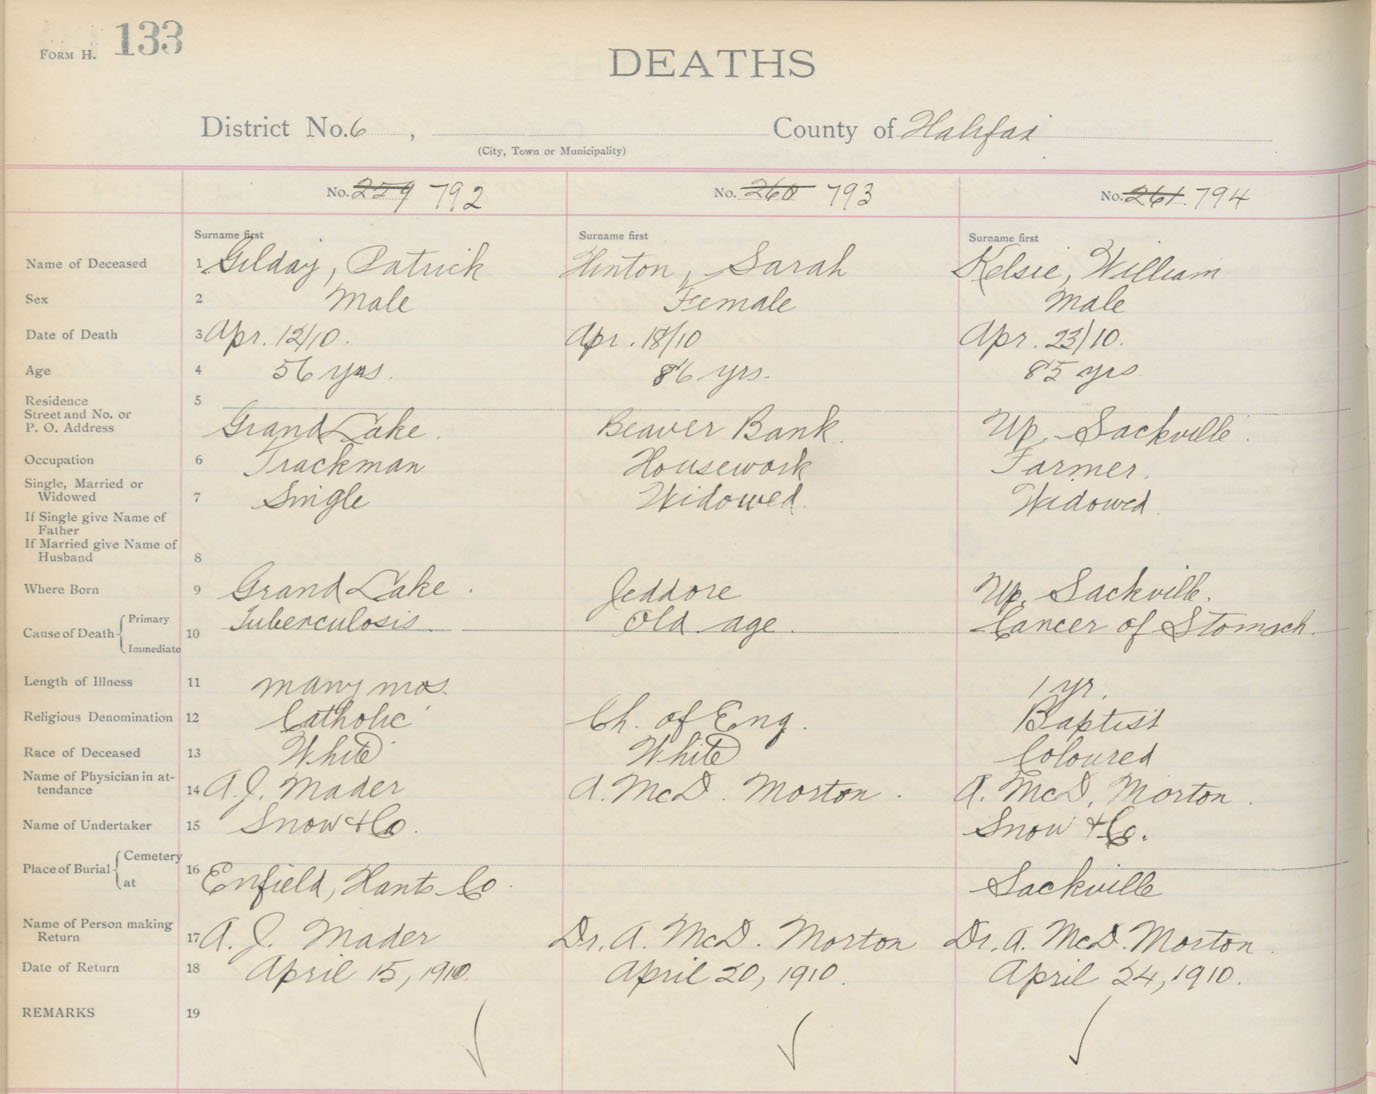 FORM H. 133
DEATHS
District No. 6 , County of Halifax
(City, Town or Municipality)
No. 259 792 No. 260 793 No. 261 794
Surname first Surname first Surname first
Name of Deceased 1 Gilday, Patrick Hinton, Sarah Kelsie, William
Sex 2 Male Female Male
Date of Death 3 Apr. 12/10. Apr. 18/10 Apr. 23/10.
Age 4 56 yrs. 86 yrs. 85 yrs.
Residence 5
Street and No. or
P. O. Address Grand Lake. Beaver Bank. Up. Sackville.
Occupation 6 Trackman Housework Farmer.
Single, Married or
Widowed 7 Single Widowed Widowed
If Single give Name of
Father
If Married give Name of
Husband 8
Where Born 9 Grand Lake. Jeddore Up. Sackville.
Cause of Death { Primary Immediate 10 Tuberculosis Old age. Cancer of Stomach.
Length of Illness 11 many mos. 1 yr.
Religious Denomination 12 Catholic Ch. of Eng. Baptist
Race of Deceased 13 White White Coloured
Name of Physician in at-
tendance 14 A. J. Mader A. McD. Morton. A. McD. Morton.
Name of Undertaker 15 Snow & Co. Snow & Co.
Place of Burial { Cemetery at 16 Enfield, Hants Co. Sackville
Name of Person making
Return 17 A. J. Mader Dr. A. McD. Morton Dr. A. McD. Morton.
Date of Return 18 April 15, 1910. April 20, 1910. April 24, 1910.
REMARKS 19